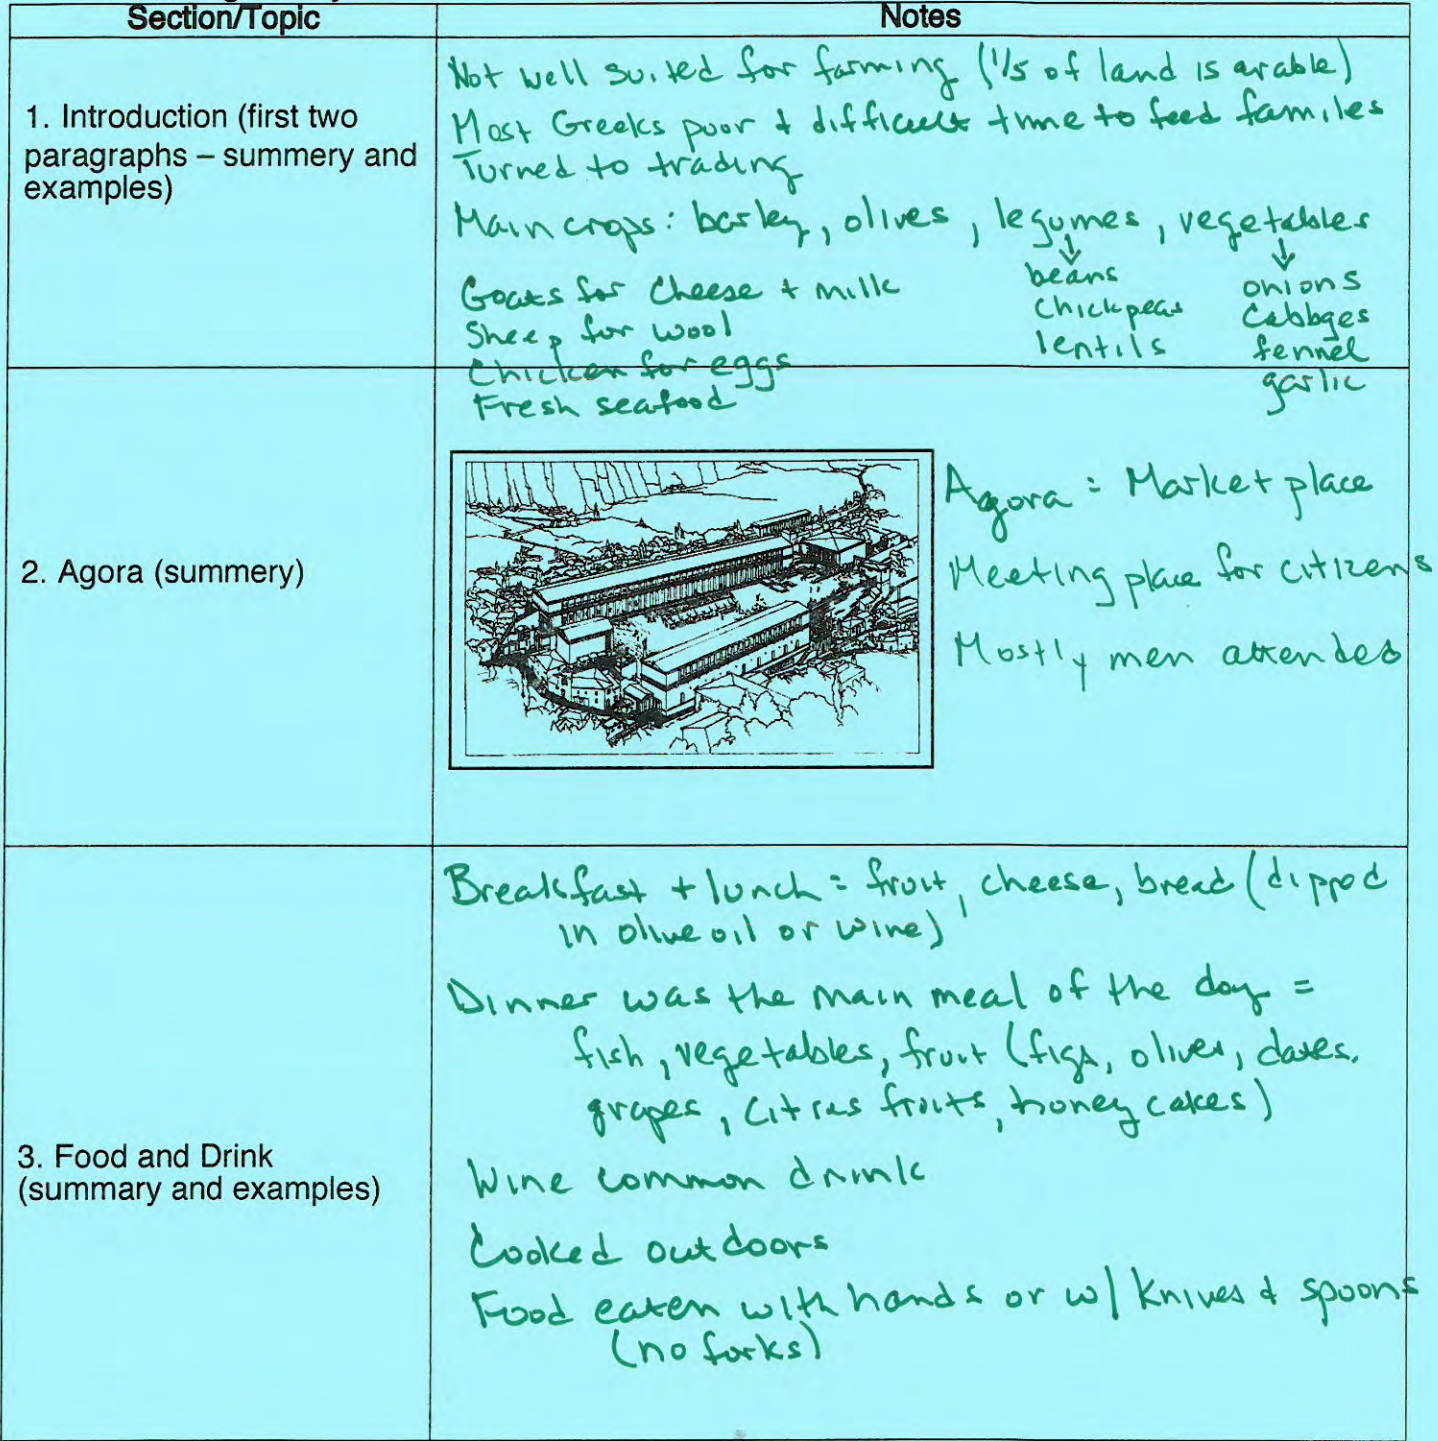 Section/Topic
Notes
1. Introduction (first two
paragraphs – summery and
examples)
Not well suited for farming (1/5 of land is arable)
Most Greeks poor + difficult time to feed familes
Turned to trading
Main crops: barley, olives, legumes, vegetables
beans
chickpeas
lentils
onions
Cabbges
fennel
garlic
Goats for Cheese + milk
Sheep for wool
Chicken for eggs
Fresh seafood
2. Agora (summery)
Agora = Market place
Meeting place for citizens
Mostly men attended
3. Food and Drink
(summary and examples)
Breakfast + lunch = fruit, cheese, bread (dipped
in olive oil or wine)
Dinner was the main meal of the day =
fish, vegetables, fruit (figs, olives, dates,
grapes, citrus fruits, honey cakes)
Wine common drink
Cooked outdoors
Food eaten with hands or w/ knives + spoons
(no forks)